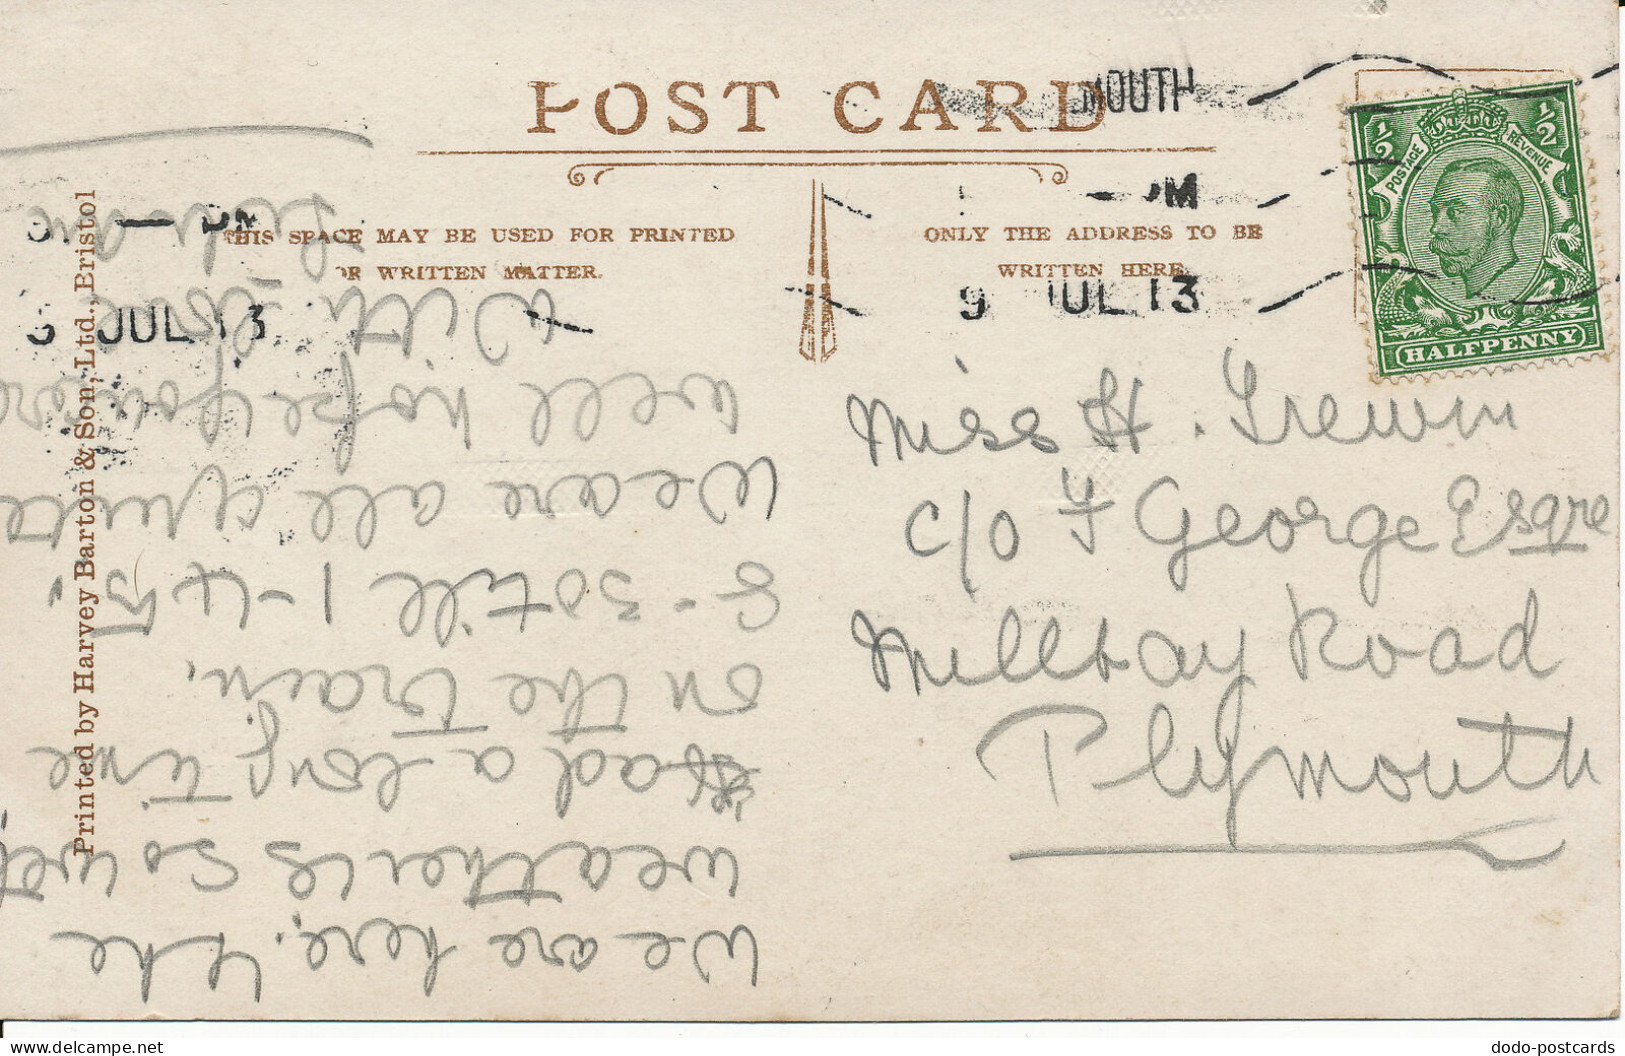 POST CARD
MOUTH
PM
9 JUL 13
PM
JUL 13
THIS SPACE MAY BE USED FOR PRINTED
OR WRITTEN MATTER.
ONLY THE ADDRESS TO BE
WRITTEN HERE.
1/2 POSTAGE REVENUE 1/2
HALFPENNY
Miss H. Trewin
c/o F George Esqre
Millbay Road
Plymouth
We are here. The
weather is so wet
Had a long time
on the train.
8-30 till 1-45.
We are all quite
well hope you are
With love
Printed by Harvey Barton & Son, Ltd., Bristol
dodo-postcards